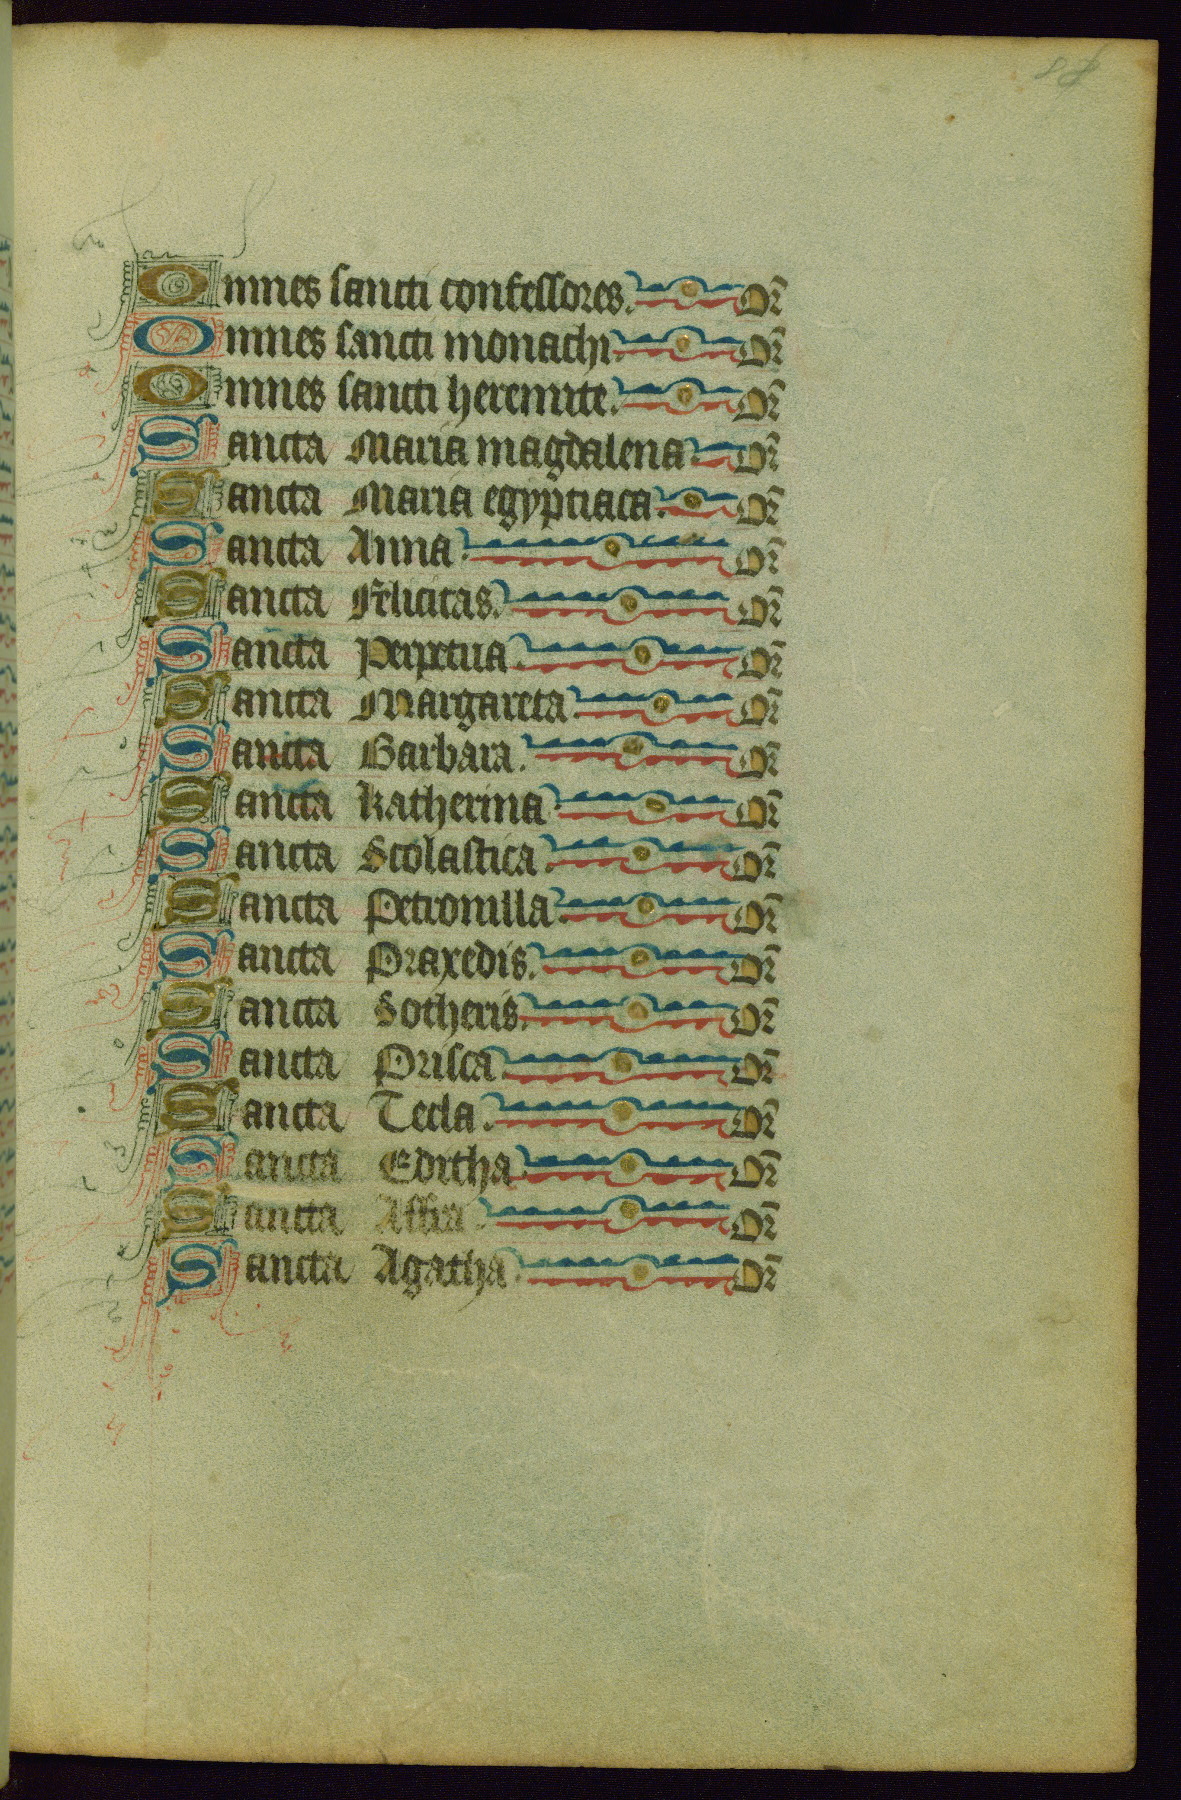 Omnes sancti confessores. Or̄
Omnes sancti monachi. Or̄
Omnes sancti heremite. Or̄
Sancta Maria magdalena. Or̄
Sancta Maria egyptiaca. Or̄
Sancta Anna. Or̄
Sancta Felicitas. Or̄
Sancta Perpetua. Or̄
Sancta Margareta. Or̄
Sancta Barbara. Or̄
Sancta Katherina. Or̄
Sancta Scolastica. Or̄
Sancta Petronilla. Or̄
Sancta Praxedis. Or̄
Sancta Sotheris. Or̄
Sancta Prisca. Or̄
Sancta Tecla. Or̄
Sancta Editha. Or̄
Sancta Affra. Or̄
Sancta Agatha. Or̄